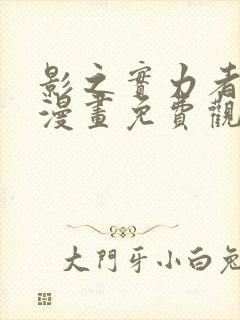 影之實力者
漫畫免費觀
大門牙小白兔